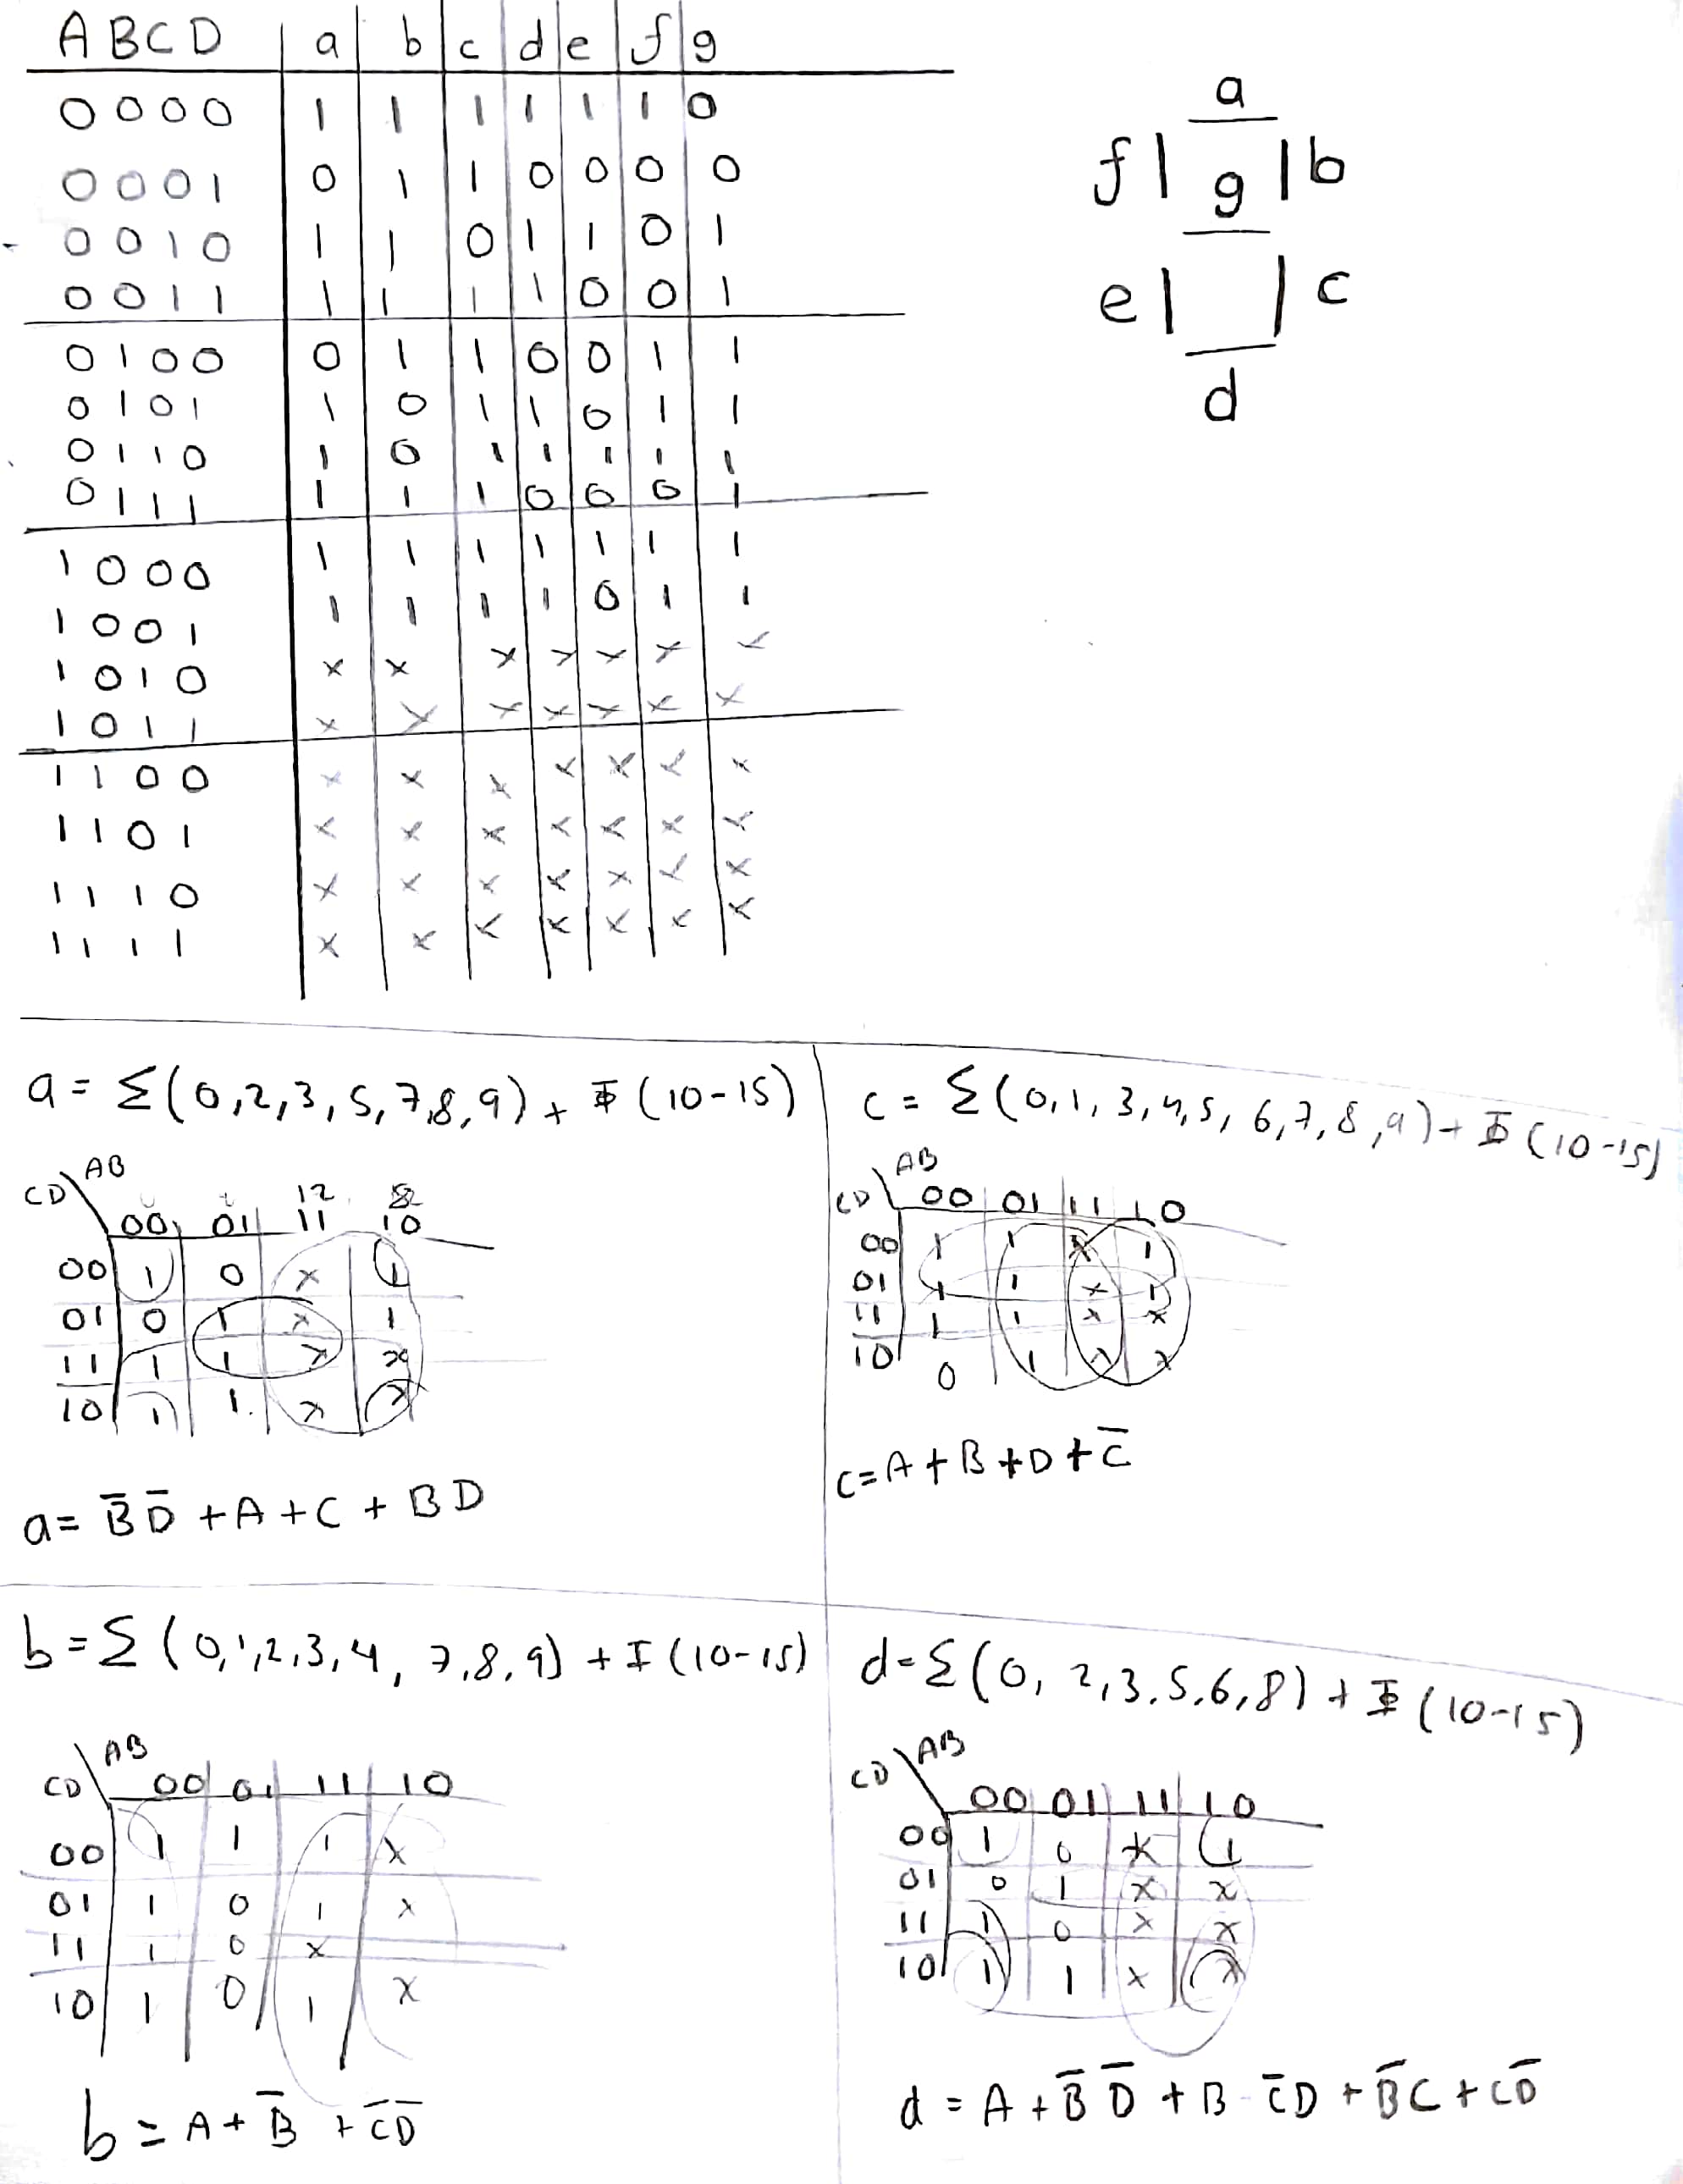 A B C D a b c d e f g
0 0 0 0 1 1 1 1 1 1 0
0 0 0 1 0 1 1 0 0 0 0
0 0 1 0 1 1 0 1 1 0 1
0 0 1 1 1 1 1 1 0 0 1
0 1 0 0 0 1 1 0 0 1 1
0 1 0 1 1 0 1 1 0 1 1
0 1 1 0 1 0 1 1 1 1 1
0 1 1 1 1 1 1 0 0 0 1
1 0 0 0 1 1 1 1 1 1 1
1 0 0 1 1 1 1 1 0 1 1
1 0 1 0 x x x x x x x
1 0 1 1 x x x x x x x
1 1 0 0 x x x x x x x
1 1 0 1 x x x x x x x
1 1 1 0 x x x x x x x
1 1 1 1 x x x x x x x
a
f g b
e c
d
a = Σ(0,2,3,5,7,8,9) + Φ(10-15)
AB
CD
12 8
00 01 11 10
00 1 0 x 1
01 0 1 x 1
11 1 1 x x
10 1 1. x x
a = B̅ D̅ + A + C + B D
c = Σ(0,1,3,4,5,6,7,8,9) + Φ(10-15)
AB
CD 00 01 11 10
00 1 1 x 1
01 1 1 x 1
11 1 1 x x
10 0 1 x x
c = A + B + D + C̅
b = Σ(0,1,2,3,4,7,8,9) + Φ(10-15)
AB
CD 00 01 11 10
00 1 1 1 x
01 1 0 1 x
11 1 0 x
10 1 0 1 x
b = A + B̅ + C̅ D̅
d = Σ(0, 2,3.5.6,8) + Φ(10-15)
AB
CD
00 01 11 10
00 1 0 x 1
01 0 1 x x
11 1 0 x x
10 1 1 x x
d = A + B̅ D̅ + B C̅ D + B̅ C + C D̅